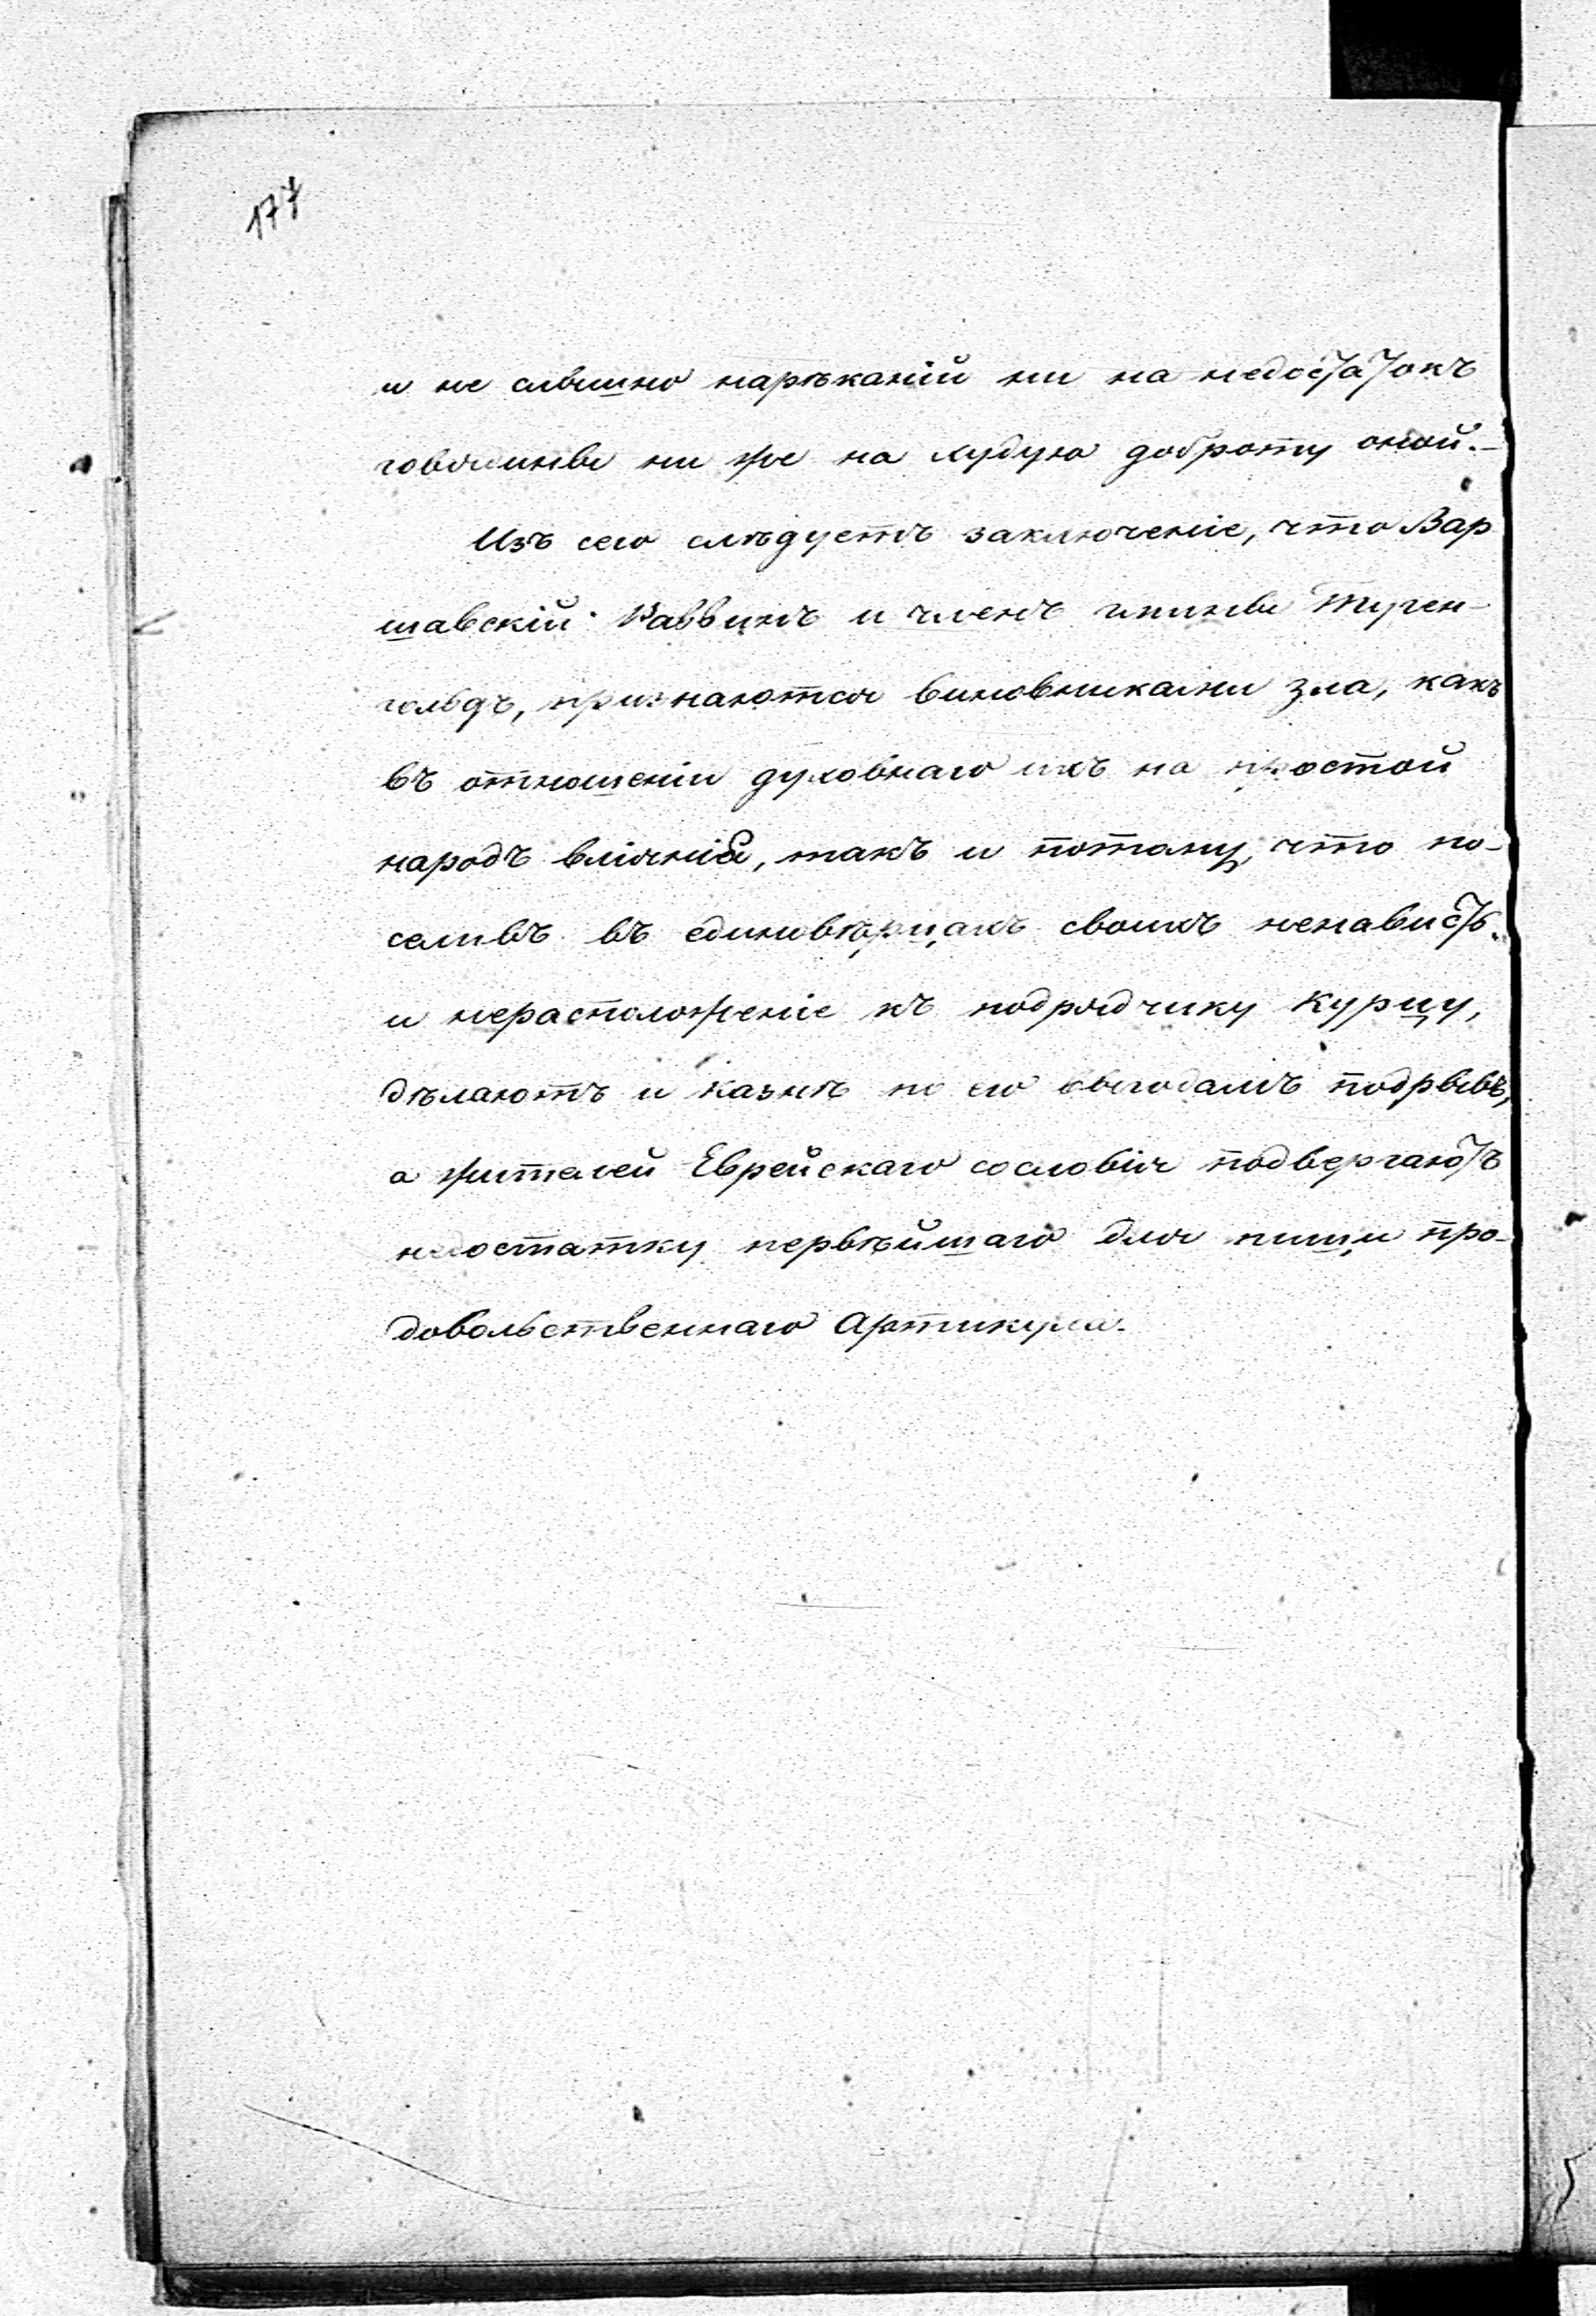 177
и не слышно нарѣканій ни на недостатокъ
говядины ни же на худую доброту оной.-
Изъ сего слѣдуетъ заключеніе, что Вар
шавскій Раввинъ и членъ гмины Туген-
гольдъ, признаются виновниками зла, какъ
въ отношеніи духовнаго ихъ на простой
народъ вліянія, такъ и потому, что по-
селивъ въ единовѣрцахъ своихъ ненависть
и нерасположеніе къ подрядчику Курцу,
дѣлаютъ и казнѣ по его выгодамъ подрывъ,
а жителей Еврейскаго сословія подвергаютъ
недостатку первѣйшаго для пищи про-
довольственнаго Артикула.